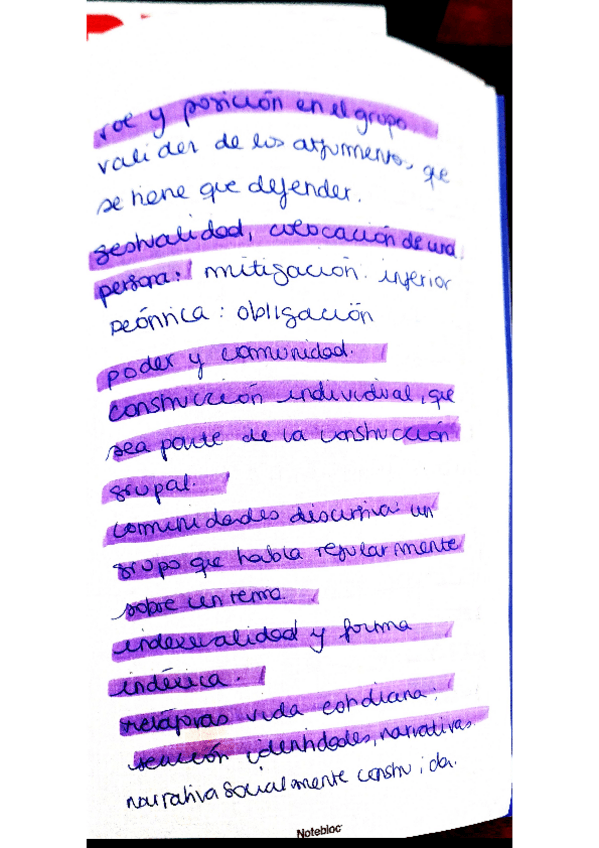 rol y posición en el grupo.
validez de los argumentos, que
se tiene que defender.
gestualidad, colocación de una
persona: mitigación: inferior
Deóntica: obligación
poder y comunidad.
construcción individual, que
sea parte de la construcción
grupal.
comunidades discursiva: un
grupo que habla regularmente
sobre un tema.
indexicalidad y forma
indéxica.
metáforas vida cotidiana:
identidades, narrativas
narrativa socialmente construida.
Notebloc